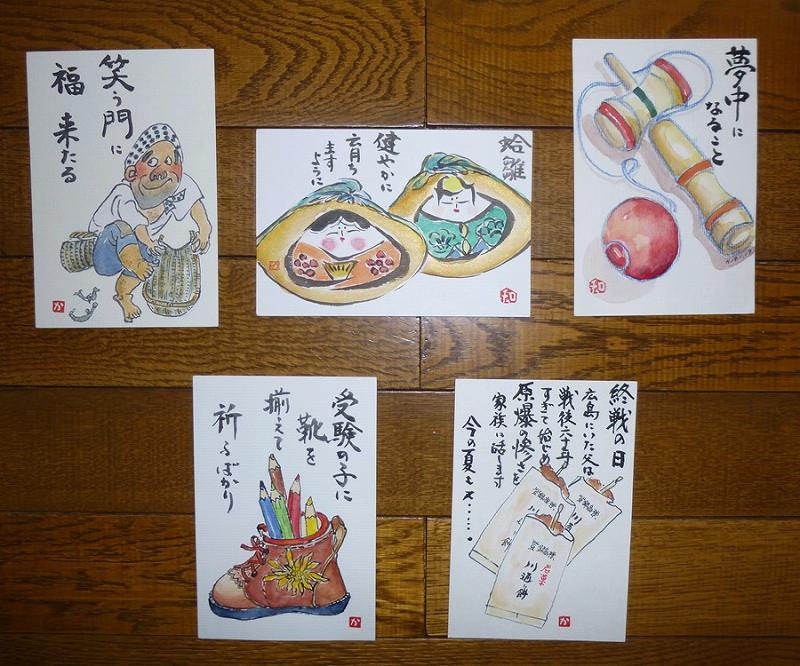 笑う門に
福 来たる
か
蛤雛
健やかに
育ち
ます
ように
和
夢中に
なること
和
受験の子に
靴を
揃えて
祈るばかり
か
終戦の日
広島にいた父は
戦後六十年
すぎて始め
原爆の惨さを
家族に話します
今の夏も又……。
登録商標
名菓
川通り餅
か